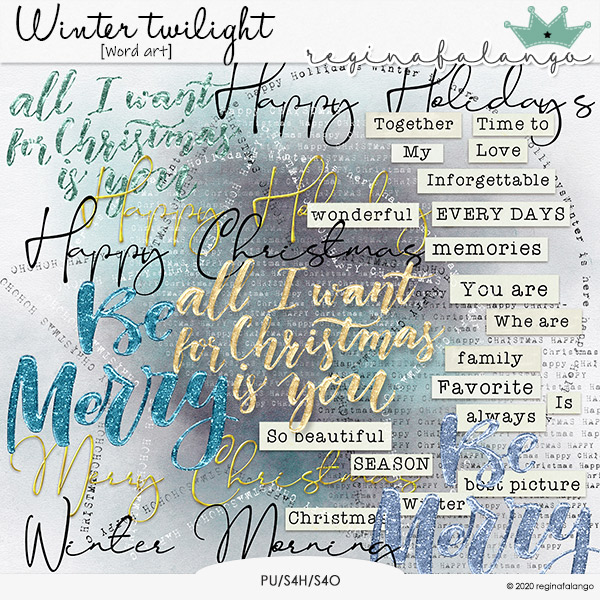 Winter twilight
[Word art]
reginafalango
all I want
for Christmas
is you
Happy Holidays
Together
Time to
My
Love
Inforgettable
Happy Holidays
wonderful
EVERY DAYS
Happy Christmas
memories
Be
Merry
all I want
for Christmas
is you
You are
Whe are
family
Favorite
Is
always
So beautiful
SEASON
Merry Christmas
Be
Merry
best picture
Christmas
Winter
Winter Morning
PU/S4H/S4O
© 2020 reginafalango